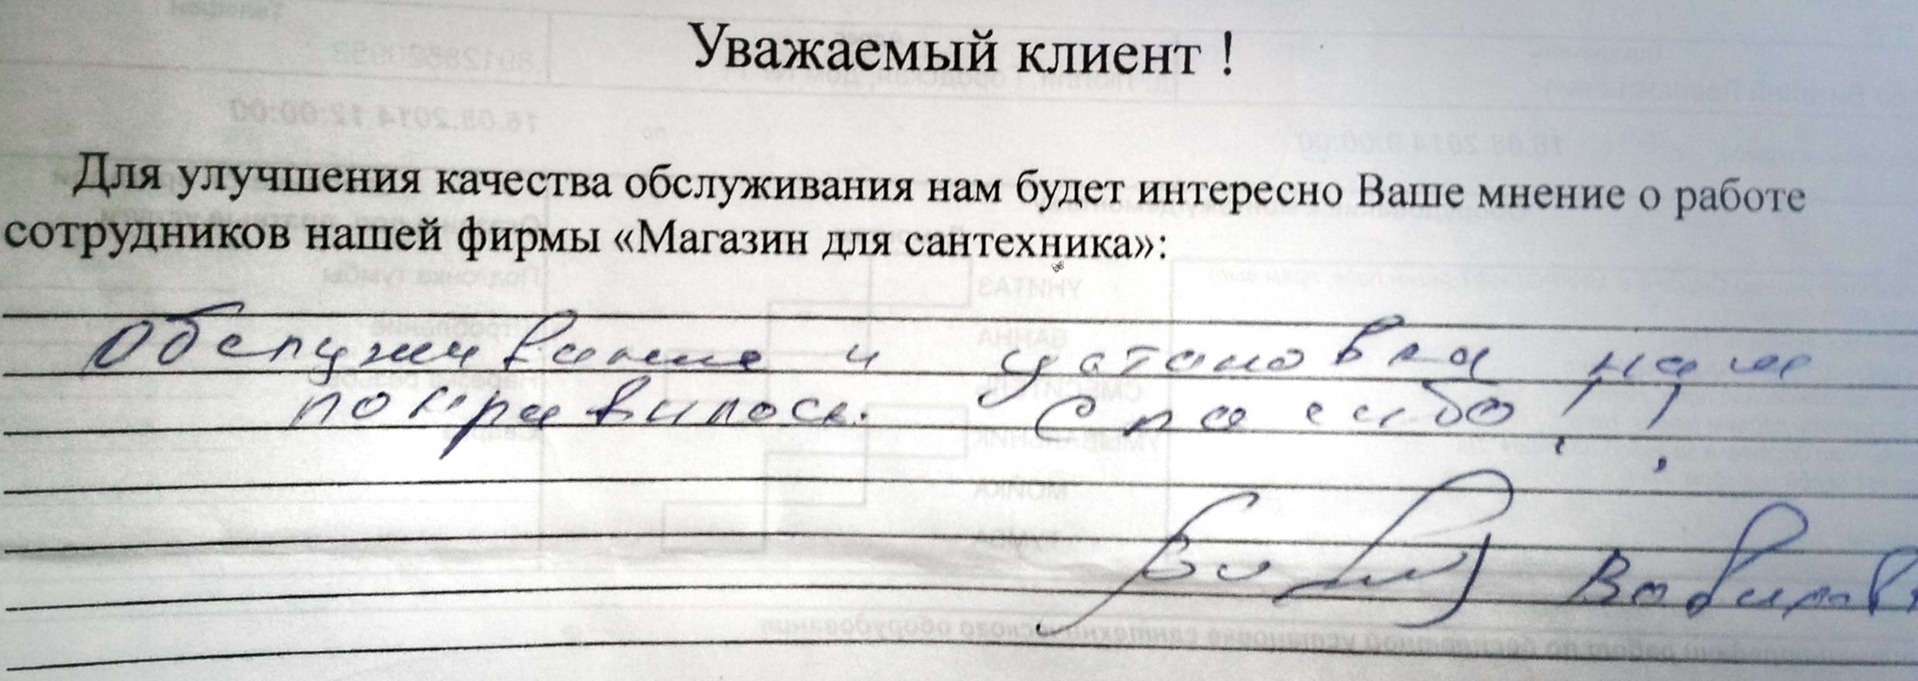 Уважаемый клиент !
Для улучшения качества обслуживания нам будет интересно Ваше мнение о работе
сотрудников нашей фирмы «Магазин для сантехника»:
Обслуживание и установка нам
понравилось. Спасибо!!